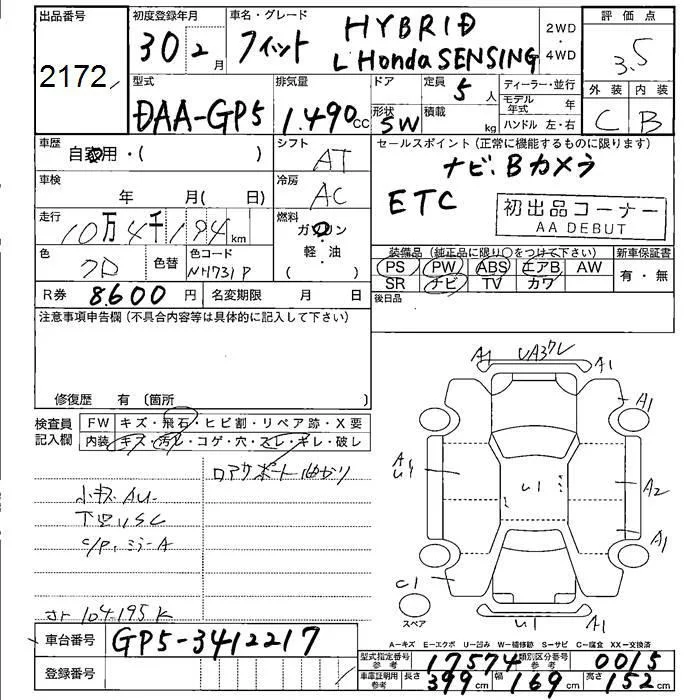 出品番号 2172
初度登録年月 30年 2月
車名・グレード フィット HYBRID
L Honda SENSING
2WD・4WD
評価点 3.5
外装 C 内装 B
型式 DAA-GP5
排気量 1.490cc
ドア 形状 5W
定員 5人
積載 kg
ディーラー・並行
モデル年式 年
ハンドル 左・右
車歴 自家用・( )
シフト AT
セールスポイント (正常に機能するものに限ります)
ナビ、Bカメラ
ETC
初出品コーナー
AA DEBUT
車検 年 月( 日)
冷房 AC
走行 10万4千194km
燃料 ガソリン
軽・油
( )
色 クロ 色替 色コード NH731P
装備品(純正品に限り○をつけて下さい) 新車保証書
PS PW ABS エアB AW 有・無
SR ナビ TV カワ
R券 8600円 名変期限 月 日
後日品
注意事項申告欄(不具合内容等は具体的に記入して下さい)
修復歴 有 〔箇所 〕
検査員記入欄
FW キズ・飛石・ヒビ割・リペア跡・X要
内装 キズ・汚レ・コゲ・穴・スレ・キレ・破レ
ロアサポート曲がり
小キズ AU
下回りSC
C/P、ミラーA
メーター 104.195K
A1 UA3ワレ A1
A1
A U4
U1
A2
A1
C1
スペア
U1 A1
A-キズ E-エクボ U-凹み W-補修跡 S-サビ C-腐食 XX-交換済
車台番号 GP5-3412217
登録番号
型式指定番号 参考 17574 類別区分番号 参考 0015
車庫証明用 参考 長さ 399cm 幅 169cm 高さ 152cm